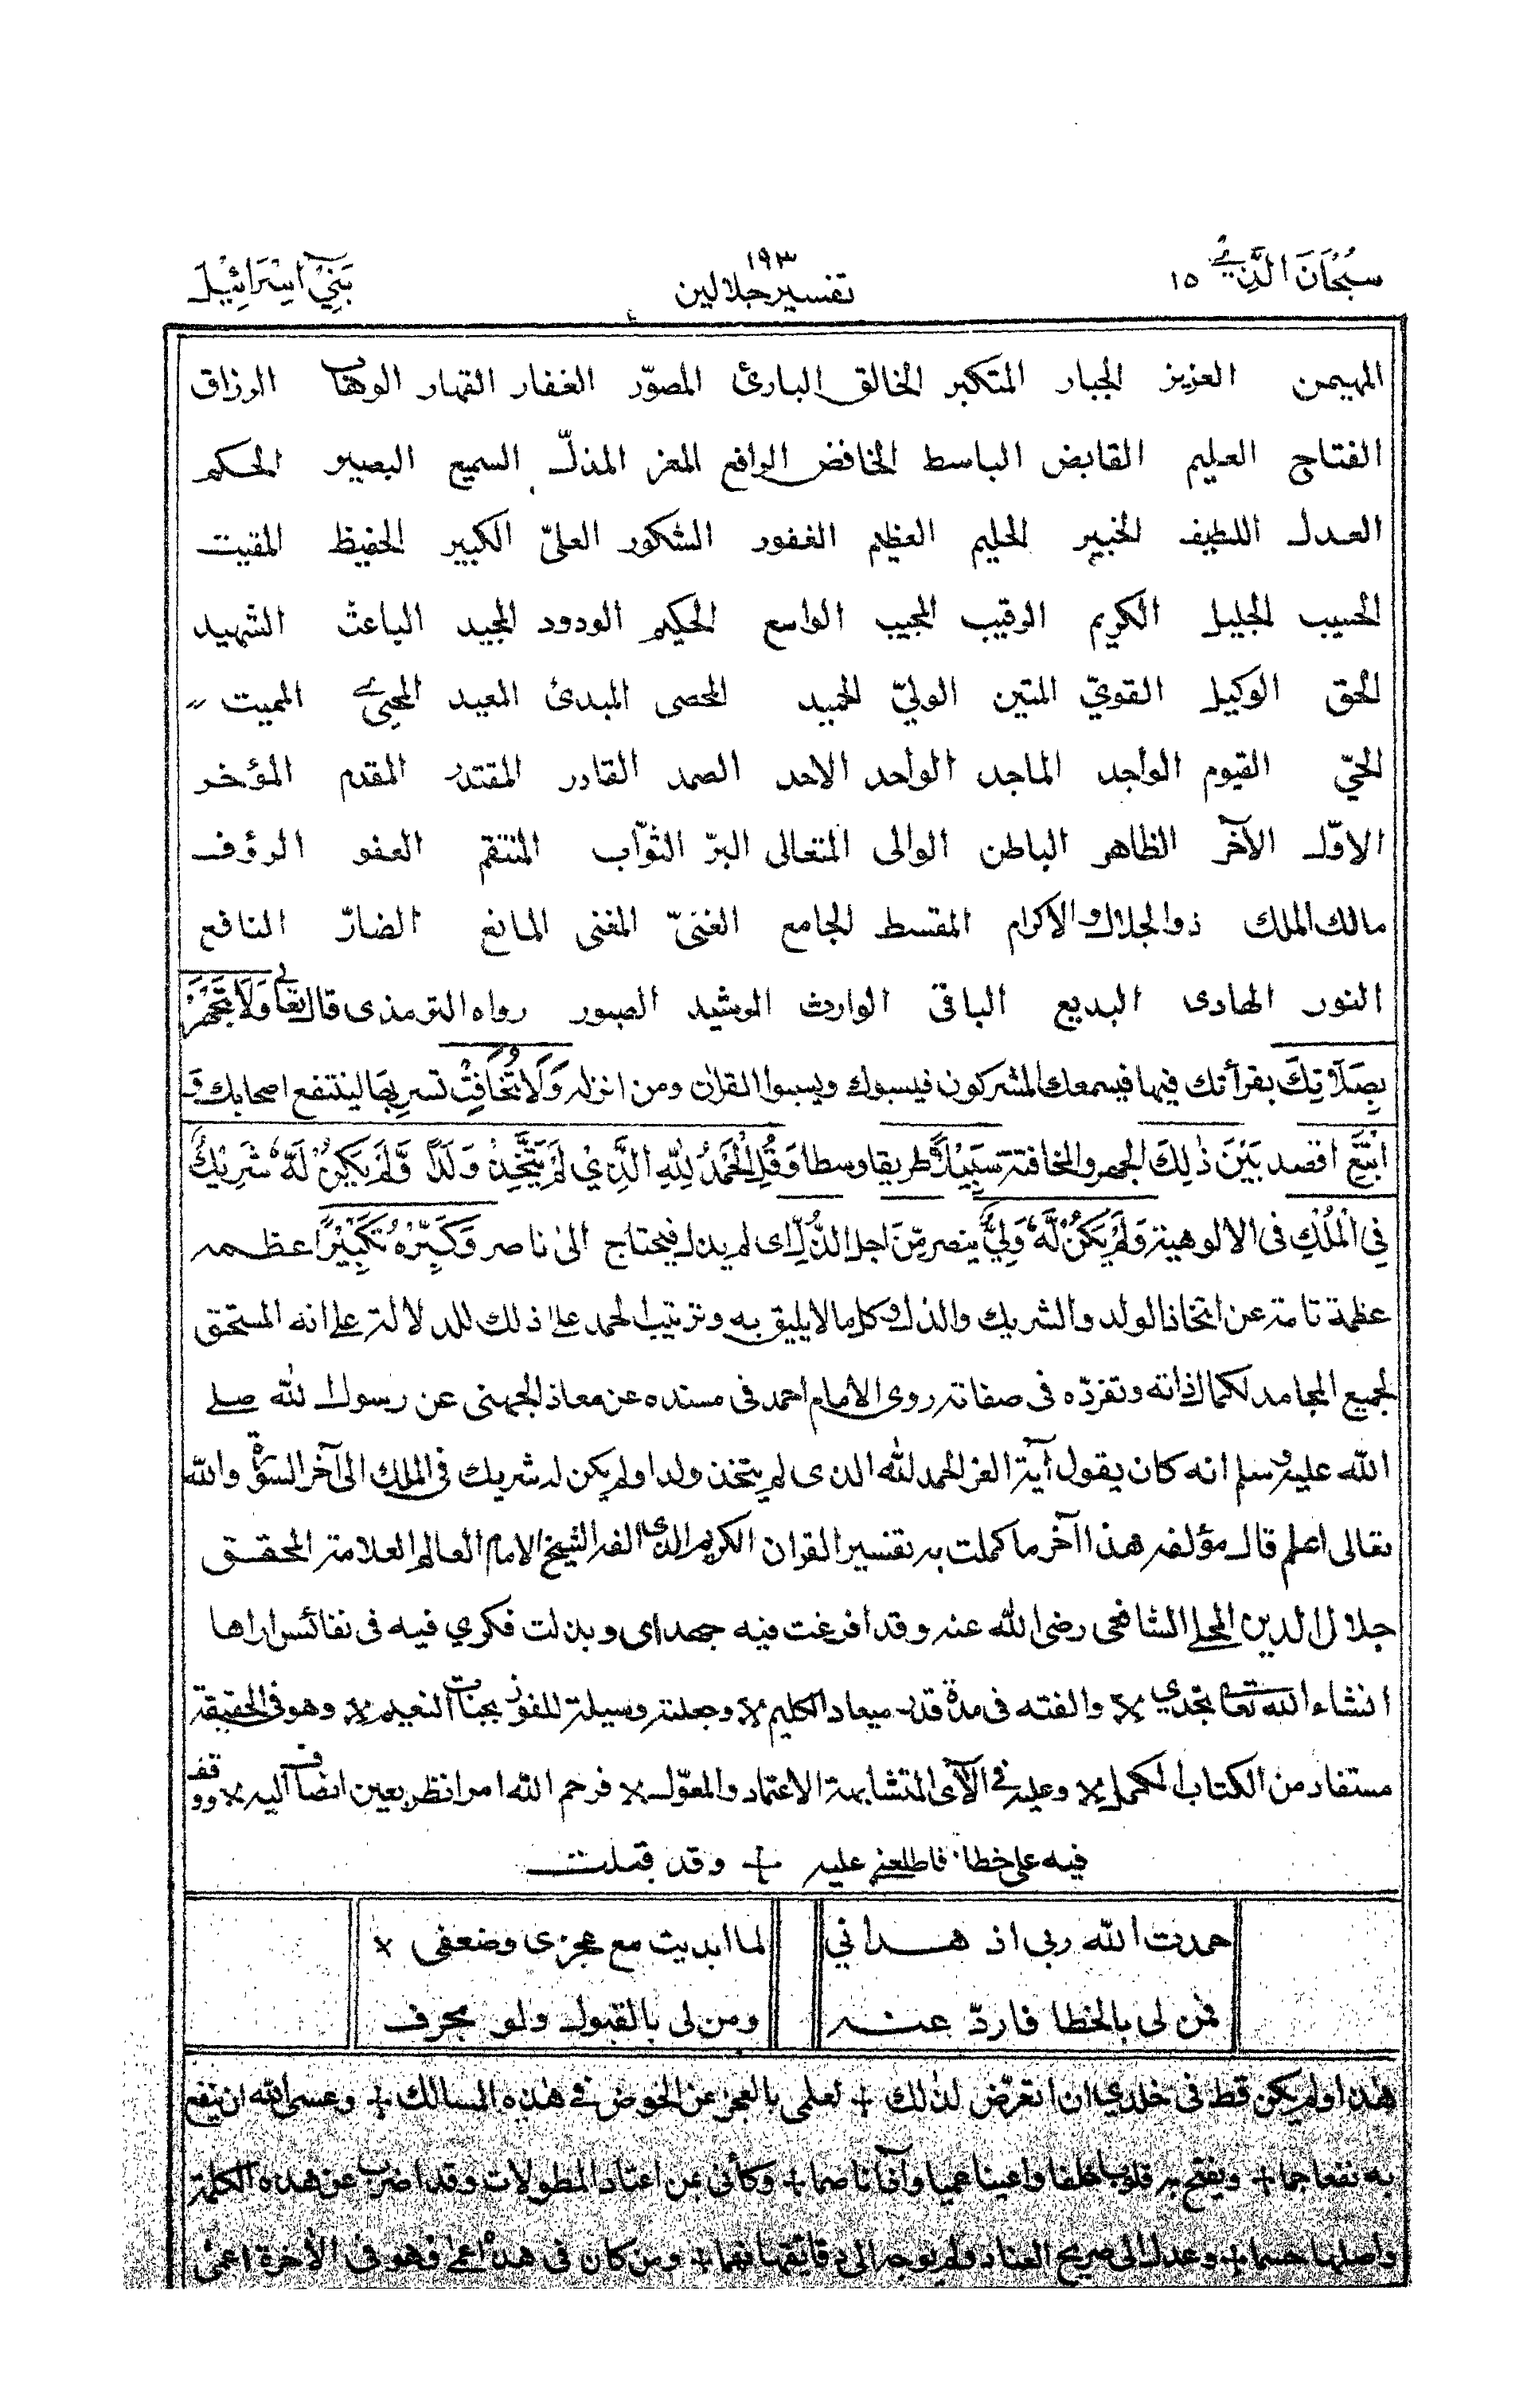 سُبْحَانَ الَّذِيْ ١٥
١٩٣
تفسير جلالين
بَنِيْٓ اِسْرَائِيْل
المهيمن العزيز الجبار المتكبر الخالق البارئ المصوّر الغفار القهار الوهاب الرزاق
الفتاح العليم القابض الباسط الخافض الرافع المعز المذلّ السميع البصير الحكم
العدل اللطيف الخبير الحليم العظيم الغفور الشكور العليّ الكبير الحفيظ المقيت
الحسيب الجليل الكريم الرقيب المجيب الواسع الحكيم الودود المجيد الباعث الشهيد
الحق الوكيل القويّ المتين الوليّ الحميد المحصى المبدئ المعيد المحيي المميت
الحيّ القيوم الواجد الماجد الواحد الاحد الصمد القادر المقتدر المقدم المؤخر
الاوّل الآخر الظاهر الباطن الوالى المتعالى البرّ التوّاب المنتقم العفو الرؤف
مالك الملك ذو الجلال والاكرام المقسط الجامع الغنيّ المغنى المانع الضارّ النافع
النور الهادى البديع الباقى الوارث الرشيد الصبور رواه الترمذى قال تعالى وَلَا تَجْهَرْ
بِصَلَاتِكَ بقرأتك فيها فيسمعك المشركون فيسبوك ويسبوا القران ومن انزله وَلَا تُخَافِتْ تسر بِهَا لينتفع اصحابك وَ
ابْتَغِ اقصد بَيْنَ ذٰلِكَ الجهر والمخافتة سَبِيْلًا طريقا وسطا وَقُلِ الْحَمْدُ لِلّٰهِ الَّذِيْ لَمْ يَتَّخِذْ وَلَدًا وَّلَمْ يَكُنْ لَّهٗ شَرِيْكٌ
فِي الْمُلْكِ فى الالوهية وَلَمْ يَكُنْ لَّهٗ وَلِيٌّ ينصر مِّنَ اجل الذُّلِّ اى لم يذل فيحتاج الى ناصر وَكَبِّرْهُ تَكْبِيْرًا عظمه
عظمة تامة عن اتخاذ الولد والشريك والذل وكل ما لا يليق به وترتيب الحمد على ذلك للدلالة على انه المستحق
لجميع المحامد لكمال ذاته وتفرّده فى صفاته روى الامام احمد فى مسنده عن معاذ الجهنى عن رسول الله صلى
الله عليه وسلم انه كان يقول آية العز الحمد لله الذى لم يتخذ ولدا ولم يكن له شريك فى الملك الى آخر السورة والله
تعالى اعلم قال مؤلفه هذا آخر ما كملت به تفسير القران الكريم الذى الفه الشيخ الامام العالم العلامة المحقق
جلال الدين المحلى الشافعى رضى الله عنه وقد افرغت فيه جهدى وبذلت فكري فيه فى نفائس اراها
انشاء الله تعالى تجدي × والفته فى مدة قدر ميعاد الكليم × وجعلته وسيلة للفوز بجنات النعيم × وهو فى الحقيقة
مستفاد من الكتاب المكمل × وعليه فى الآى المتشابهة الاعتماد والمعوّل × فرحم الله امرا نظر بعين انصاف اليه × ووقف
فيه على خطأ فاطلعنى عليه + وقد قلت
حمدت الله ربى اذ هدانى لما ابديت مع عجزى وضعفى ×
فمن لى بالخطا فاردّ عنه ومن لى بالقبول ولو بحرف
هذا ولم يكن قط فى خلدي ان اتعرّض لذلك + لعلمى بالعجز عن الخوض فى هذه المسالك + وعسى الله ان ينفع
به نفعا جما + ويفتح به قلوبا غلفا واعينا عميا وآذانا صما + وكأنى بمن اعتاد المطولات وقد اضرب عن هذه التكملة
واصلها حسما + وعدل الى صريح العناد ولم يوجه الى دقائقها فهما + ومن كان فى هذه اعمى فهو فى الآخرة اعمى